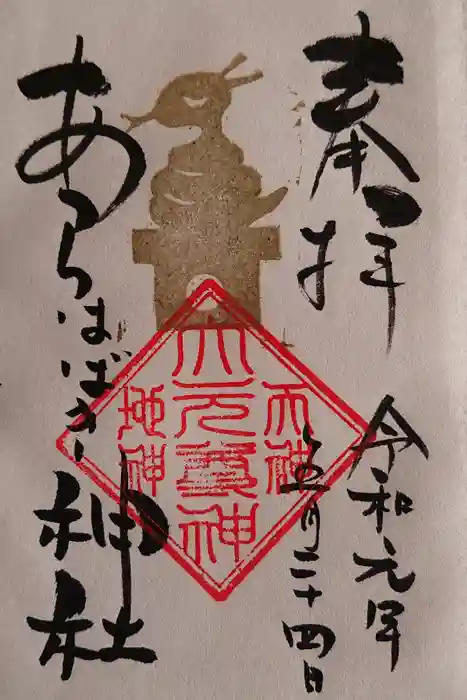 奉拝
令和元年
五月二十四日
天神
大元尊神
地神
あらはばき神社